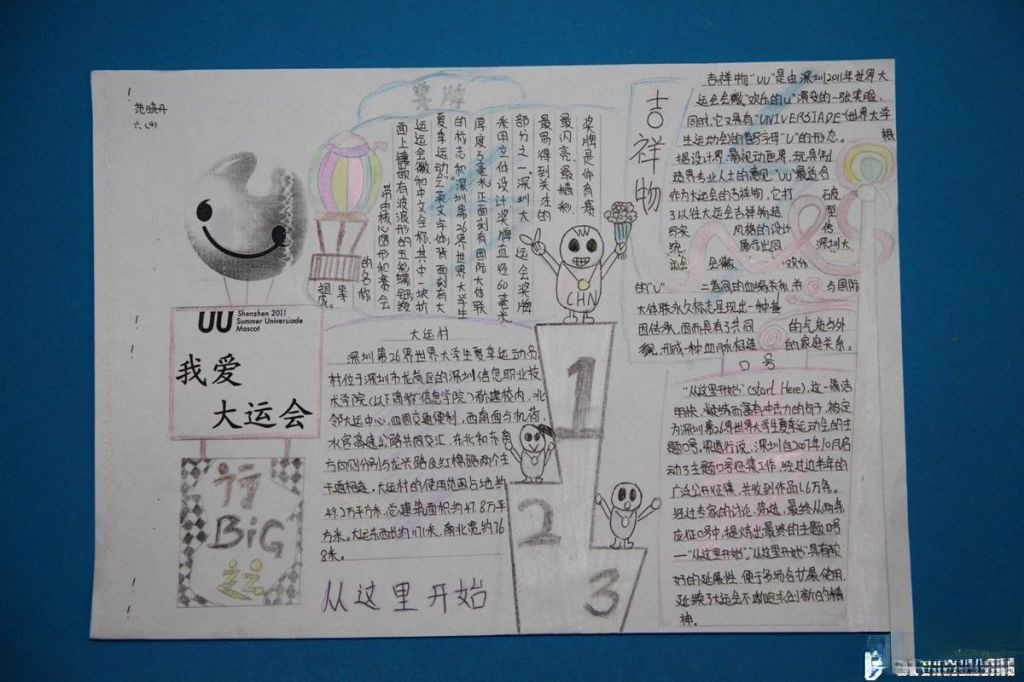 范晓丹
六(4)
UU Shenzhen 2011
Summer Universiade
Mascot
我爱
大运会
行
BiG
运
奖牌
奖牌是所有赛
最闪亮、最精彩、
最易得到关注的
部分之一。深圳大
运会奖牌
采用立体设计奖牌直径60毫米
厚度6毫米正面刻有国际大体联
的标志和深圳第26界世界大学生
夏季运动会英文字体背面刻有大
运会会徽和中文全称其中一块扩
面上镶嵌有波浪形的五轮蝴蝶纹
其中由核心图形和赛会
的名称
组成。
大运村
深圳第26界世界大学生夏季运动员
村位于深圳市龙岗区的深圳信息职业技
术学院(以下简称"信息学院")新建校内,北
邻大运中心,四周交通便利,西南面与机荷、
水官高速公路共同交汇,东北和东南
方向则分别与龙兴路及红棉路两个主
干道相连。大运村的使用范围占地约
49.2万平方米,总建筑面积约47.8万平
方米。大运东西长约1171米,南北宽约76
8米。
从这里开始
CHN
1
2
3
吉祥物
吉祥物"UU"是由深圳2011年世界大
运会会徽"欢乐的U"演变的一张笑脸,
同时,它又具有"UNIVERSIADE"(世界大学
生运动会)的首字母"U"的形态。 根
据设计界、影视动画界、玩具制
造界专业人士的意见"UU"最适合
作为大运会的吉祥物,它打 破
了以往大运会吉祥物造 型
风格的设计 传
统, 深圳大
运会 会徽 欢乐
的"U" 二者间的血缘关系 与国际
大体联永久标志呈现出一种基
因传承,因而具有了共同 的气质与外
貌,形成一种血脉相连 的家庭关系。
口号
"从这里开始"(Start Here),这一简洁
明快、凝练而富有冲击力的句子,被定
为深圳第26界世界大学生夏季运动会的主
题口号,梁道行说,深圳自2007年10月启
动了主题口号征集工作,经过近半年的
广泛公开征集,共收到作品1.6万条。
经过专家的讨论、筛选,最终从两条
应征口号中,提炼出最终的主题口号
—"从这里开始"。"从这里开始"具有较
好的延展性,便于多场合扩展使用,
延续了大运会不断追求创新的精
神。